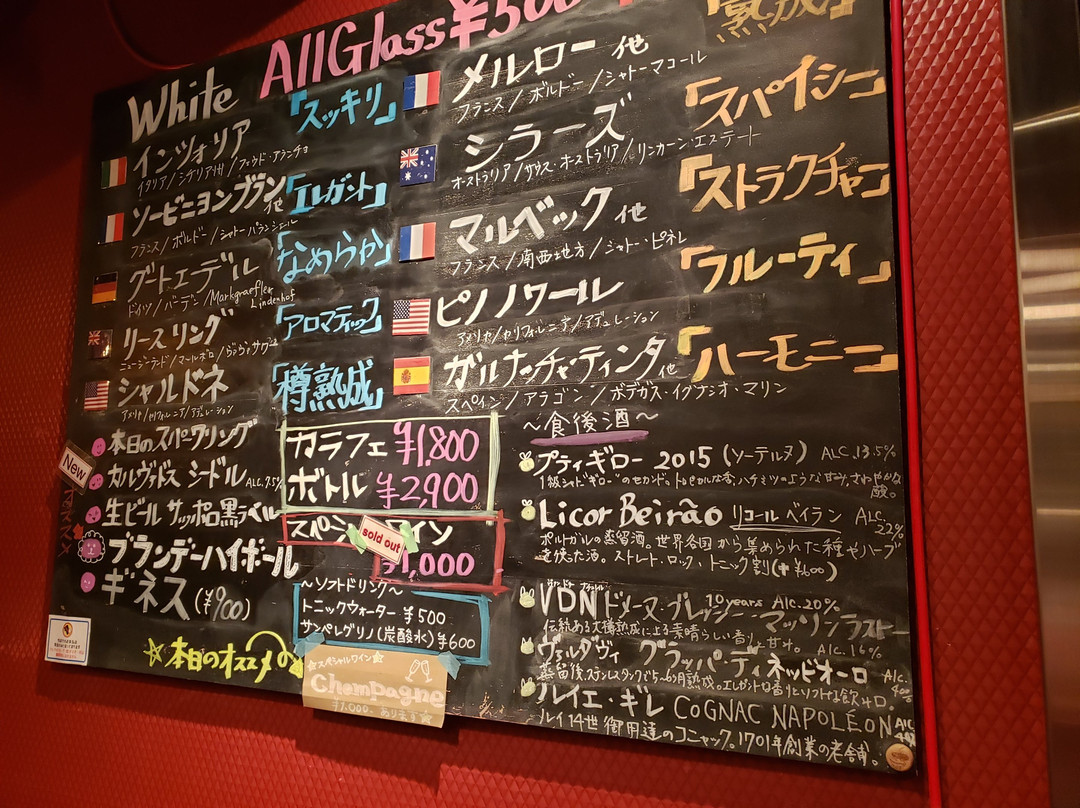 AllGlass¥500
熟成」
White
「スッキリ」
インツォリア
イタリア/シチリア州/フェウド・アランチョ
ソービニヨンブラン他
「エレガント」
フランス/ボルドー/シャトーバランシェール
グートエデル
「なめらか」
ドイツ/バーデン/Markgraefler Lindenhof
リースリング
「アロマティック」
ニュージーランド/マールボロ/
シャルドネ
「樽熟成」
アメリカ/カリフォルニア/アデュレーション
メルロー 他
フランス/ボルドー/シャトーマコール
「スパイシー」
シラーズ
オーストラリア/サウス・オーストラリア/リンカーン・エステート
「ストラクチャー」
マルベック 他
フランス/南西地方/シャトー・ピネレ
「フルーティ」
ピノノワール
アメリカ/カリフォルニア/アデュレーション
「ハーモニー」
ガルナッチャ・ティンタ他
スペイン/アラゴン/ボデガス・イグナシオ・マリン
本日のスパークリング
New
カルヴァドス シードル ALC.7.5%
生ビール サッポロ黒ラベル
ブランデーハイボール
ギネス(¥900)
☆本日のオススメの
カラフェ ¥1,800
ボトル ¥2,900
スペシャルワイン
sold out
¥1,000
~ソフトドリンク~
トニックウォーター ¥500
サンペレグリノ(炭酸水)¥600
☆スペシャルワイン☆
Champagne
¥1,000、あります☆
~食後酒~
プティギロー 2015 (ソーテルヌ) ALC.13.5%
1級シャトー"ギロー"のセカンド。トロピカルな香、ハチミツのような甘み、さわやかな酸。
Licor Beirão リコールベイラン ALC.22%
ポルトガルの蒸留酒。世界各国から集められた種やハーブ
を使た酒。ストレート・ロック・トニック割(+¥600)
VDN ドメーヌ・プレッシー・マッソン ラストー
10years Alc.20%
伝統ある大樽熟成による素晴らしい香り、甘味。 ALC.16%
ヴェルダヴィ グラッパ・ディ ネッビオーロ ALC.40%
蒸留後、ステンレスタンクで5~6ヶ月熟成。エレガントな香りとソフトな飲み口。
ルイエ・ギレ COGNAC NAPOLÉON ALC.
ルイ14世御用達のコニャック。1701年創業の老舗。